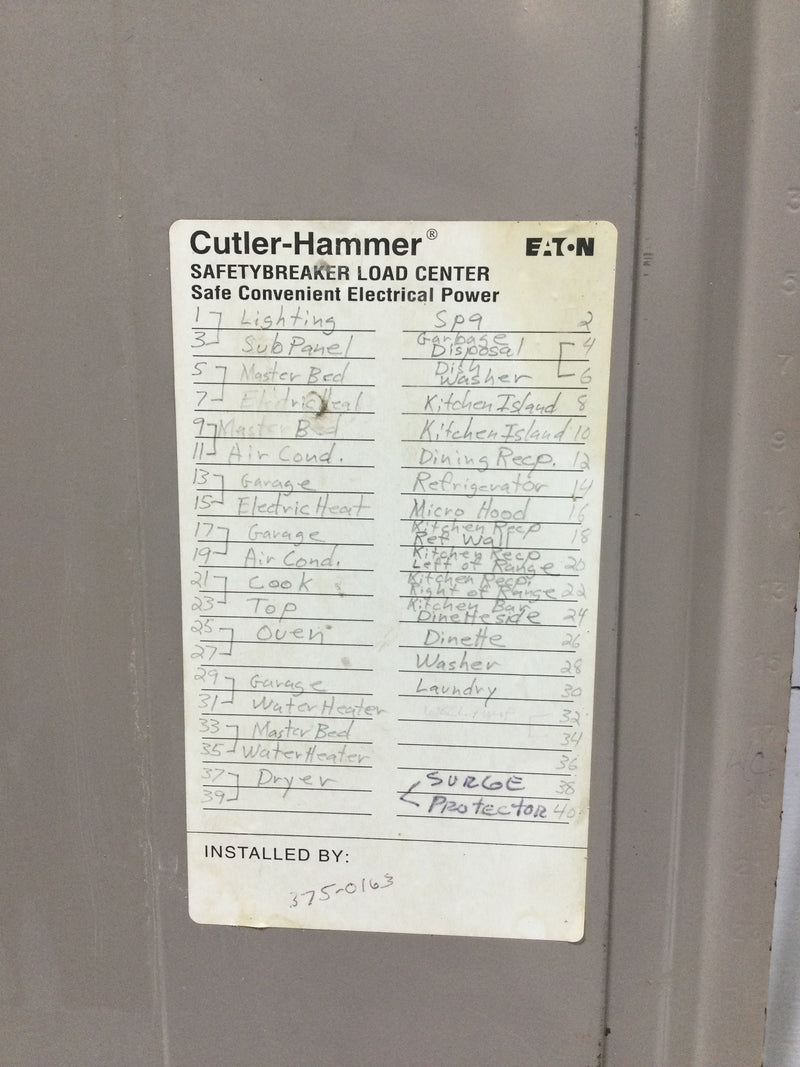 Cutler-Hammer® EATON
SAFETYBREAKER LOAD CENTER
Safe Convenient Electrical Power
1 Lighting Spa 2
3 SubPanel Garbage Disposal 4
5 Master Bed Dish Washer 6
7 Electric Heat Kitchen Island 8
9 Master Bed Kitchen Island 10
11 Air Cond. Dining Recp. 12
13 Garage Refrigerator 14
15 Electric Heat Micro Hood 16
17 Garage Kitchen Recp Ref Wall 18
19 Air Cond. Kitchen Recp Left of Range 20
21 Cook Kitchen Recp Right of Range 22
23 Top Kitchen Bar Dinette side 24
25 Oven Dinette 26
27 Washer 28
29 Garage Laundry 30
31 Water Heater 32
33 Master Bed 34
35 Water Heater 36
37 Dryer SURGE 38
39 PROTECTOR 40
INSTALLED BY:
375-0163